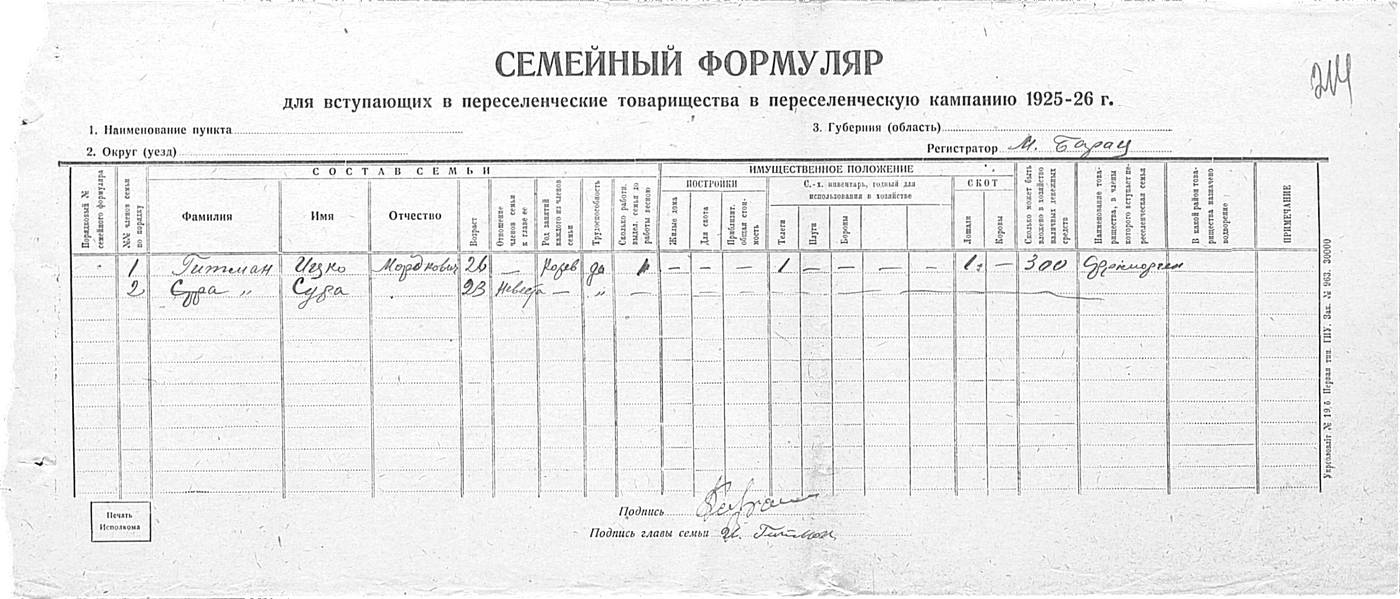 СЕМЕЙНЫЙ ФОРМУЛЯР
214
для вступающих в переселенческие товарищества в переселенческую кампанию 1925-26 г.
1. Наименование пункта
3. Губерния (область)
2. Округ (уезд)
Регистратор М. Барац
СОСТАВ СЕМЬИ
ИМУЩЕСТВЕННОЕ ПОЛОЖЕНИЕ
Порядковый № семейного формуляра
№№ членов семьи по порядку
Фамилия
Имя
Отчество
Возраст
Отношение членов семьи к главе ее
Род занятий каждого из членов семьи
Трудоспособность
Сколько работн. выдел. семья до работы весною
ПОСТРОЙКИ
Жилые дома
Для скота
Приблизит. общая стоимость
С.-х. инвентарь, годный для использования в хозяйстве
Телеги
Плуги
Бороны
СКОТ
Лошади
Коровы
Сколько может быть вложено в хозяйство наличных денежных средств
Наименование товарищества, в члены которого вступает переселенческая семья
В какой район товарищества назначено водворение
ПРИМЕЧАНИЕ
1 Гитман Ицко Мордкович 26 — да — — — 1 — — — — 1 — 300
2 " Сура 23 невеста — " — — — — — — —
Печать Исполкома
Подпись
Подпись главы семьи И. Гитман
Укрголовліт № 19. б. Первая тип. ГИУ. Зак. № 963. 30000